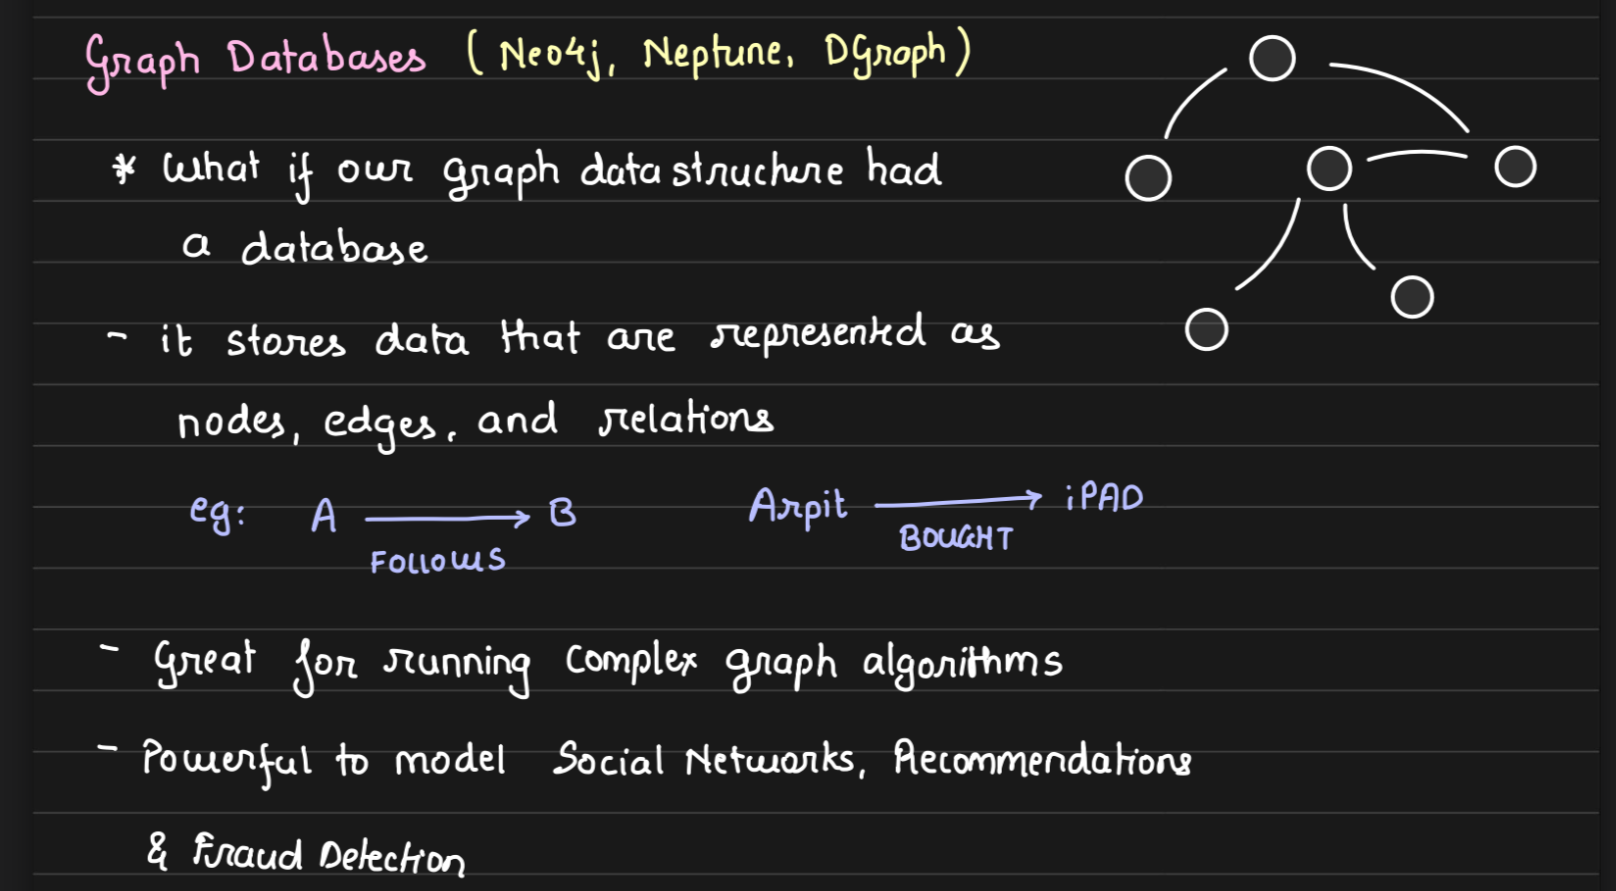 Graph Databases (Neo4j, Neptune, DGraph)
* What if our graph data structure had
a database
- it stores data that are represented as
nodes, edges, and relations
eg: A → B Arpit → iPAD
FOLLOWS BOUGHT
- Great for running complex graph algorithms
- Powerful to model Social Networks, Recommendations
& Fraud Detection